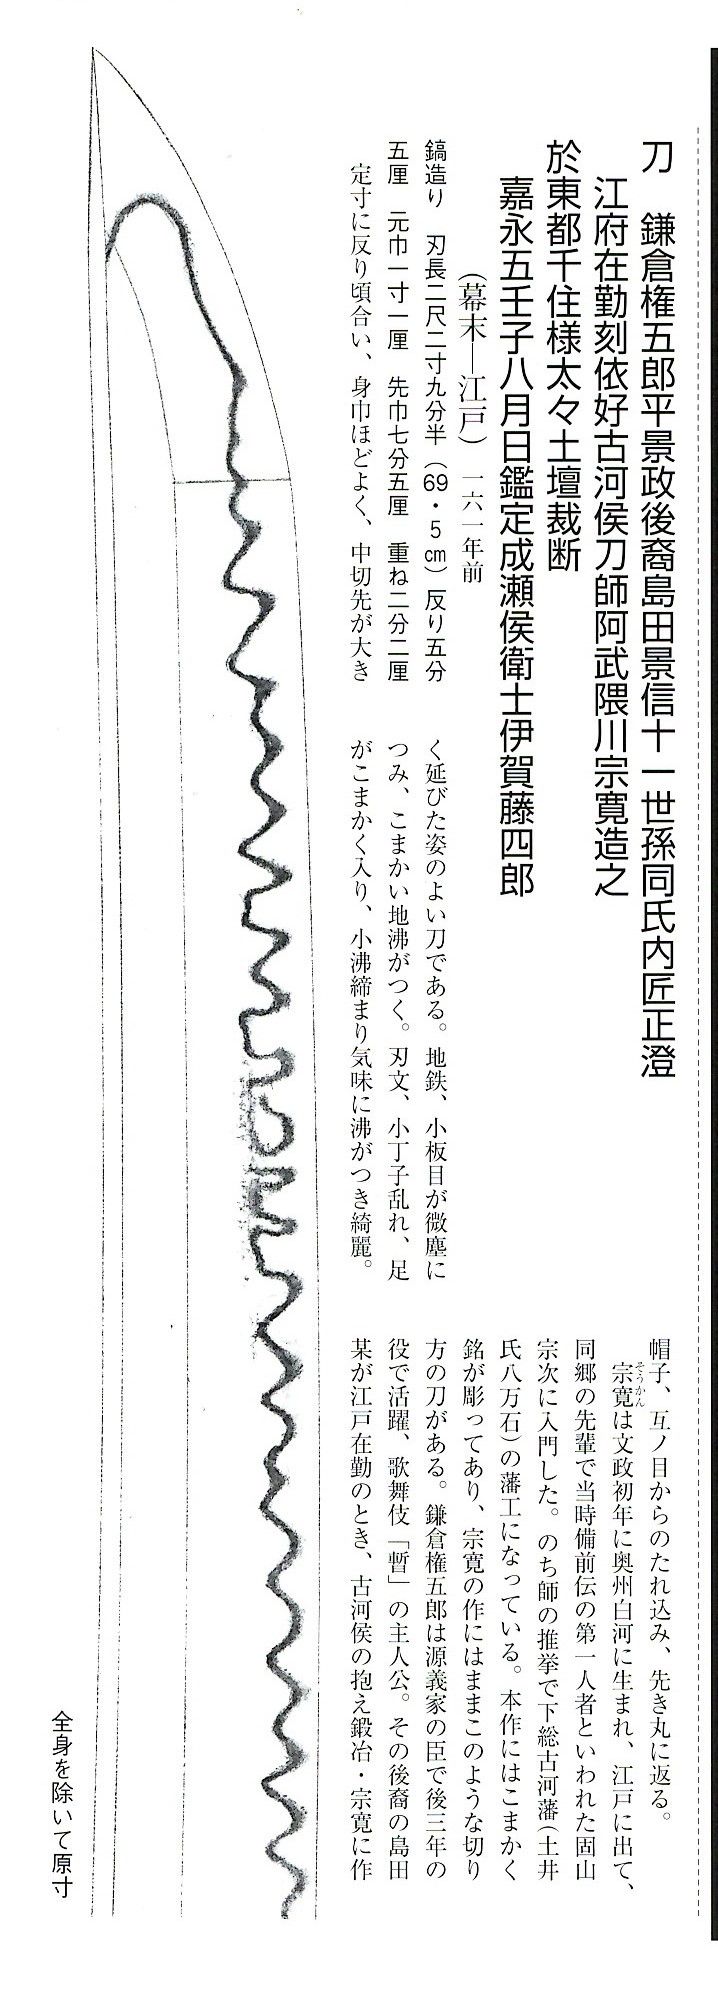 刀　鎌倉権五郎平景政後裔島田景信十一世孫同氏内匠正澄
江府在勤刻依好古河侯刀師阿武隈川宗寛造之
於東都千住様太々土壇裁断
嘉永五壬子八月日鑑定成瀬侯衛士伊賀藤四郎
（幕末―江戸）　一六一年前
鎬造り　刃長二尺二寸九分半（69・5㎝）反り五分
五厘　元巾一寸一厘　先巾七分五厘　重ね二分二厘
定寸に反り頃合い、身巾ほどよく、中切先が大き
く延びた姿のよい刀である。地鉄、小板目が微塵に
つみ、こまかい地沸がつく。刃文、小丁子乱れ、足
がこまかく入り、小沸締まり気味に沸がつき綺麗。
帽子、互ノ目からのたれ込み、先き丸に返る。
そうかん
宗寛は文政初年に奥州白河に生まれ、江戸に出て、
同郷の先輩で当時備前伝の第一人者といわれた固山
宗次に入門した。のち師の推挙で下総古河藩（土井
氏八万石）の藩工になっている。本作にはこまかく
銘が彫ってあり、宗寛の作にはままこのような切り
方の刀がある。鎌倉権五郎は源義家の臣で後三年の
役で活躍、歌舞伎「暫」の主人公。その後裔の島田
某が江戸在勤のとき、古河侯の抱え鍛冶・宗寛に作
全身を除いて原寸